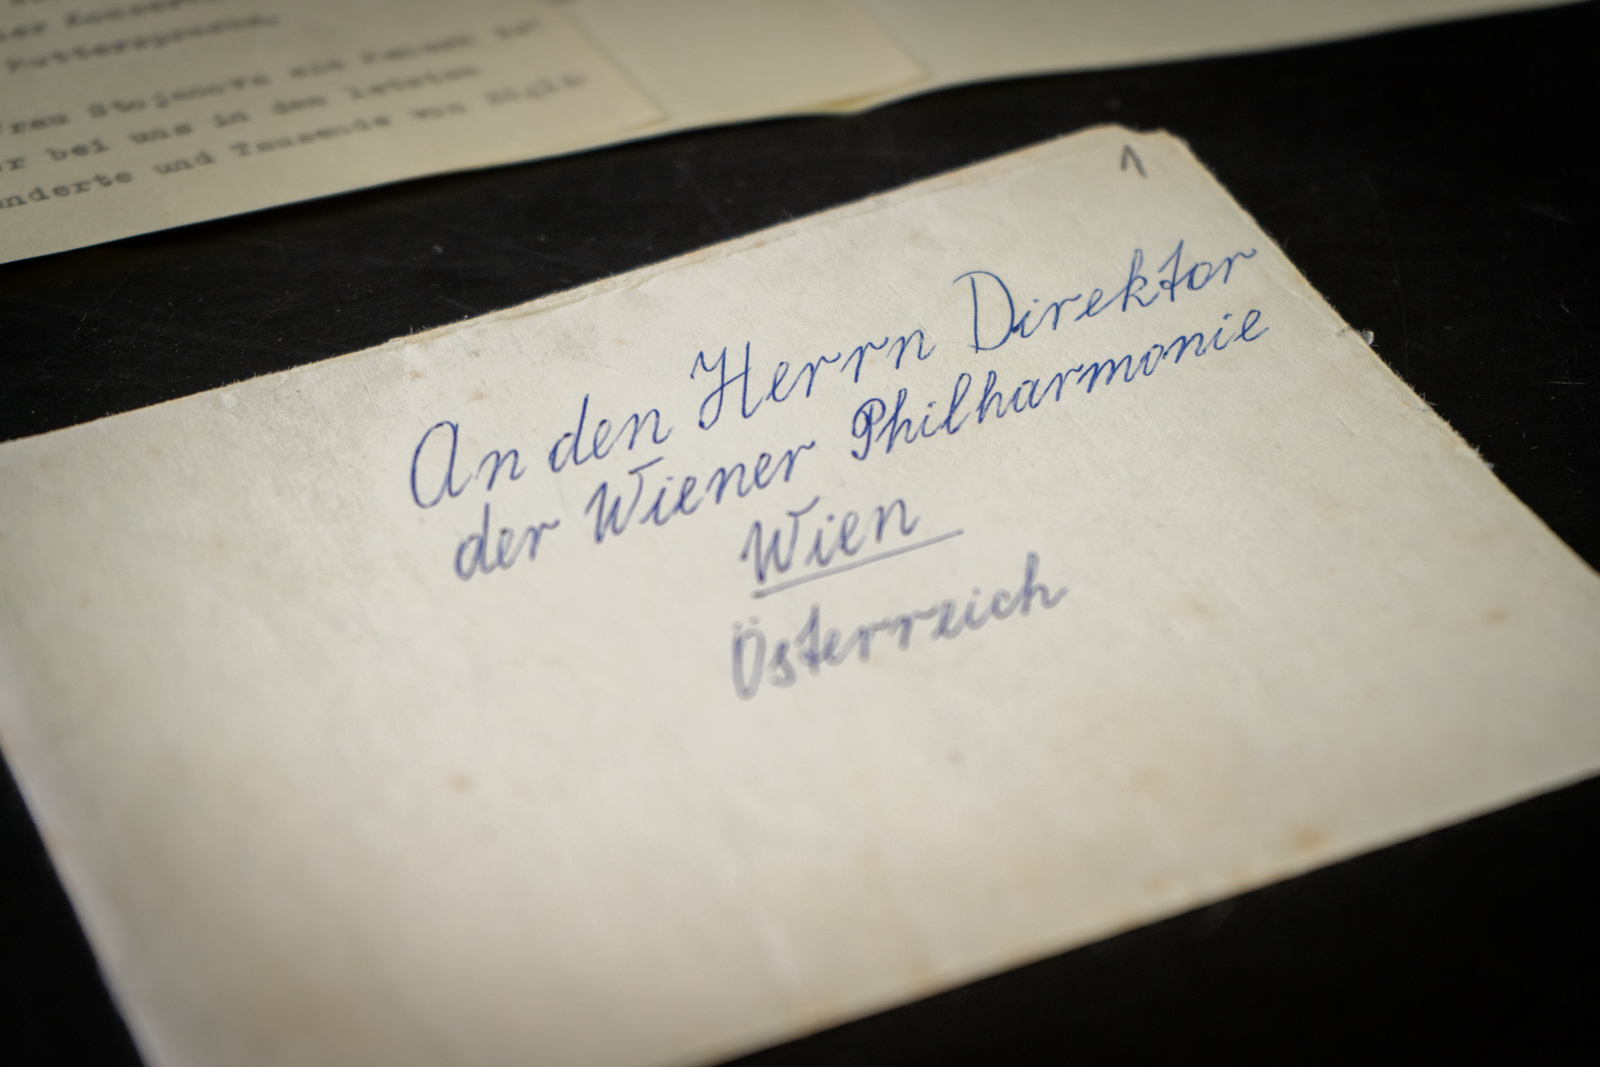 Muttersprache.
Frau Stojanova
bei uns in den letzten
und Tausende von
1
An den Herrn Direktor
der Wiener Philharmonie
Wien
Österreich